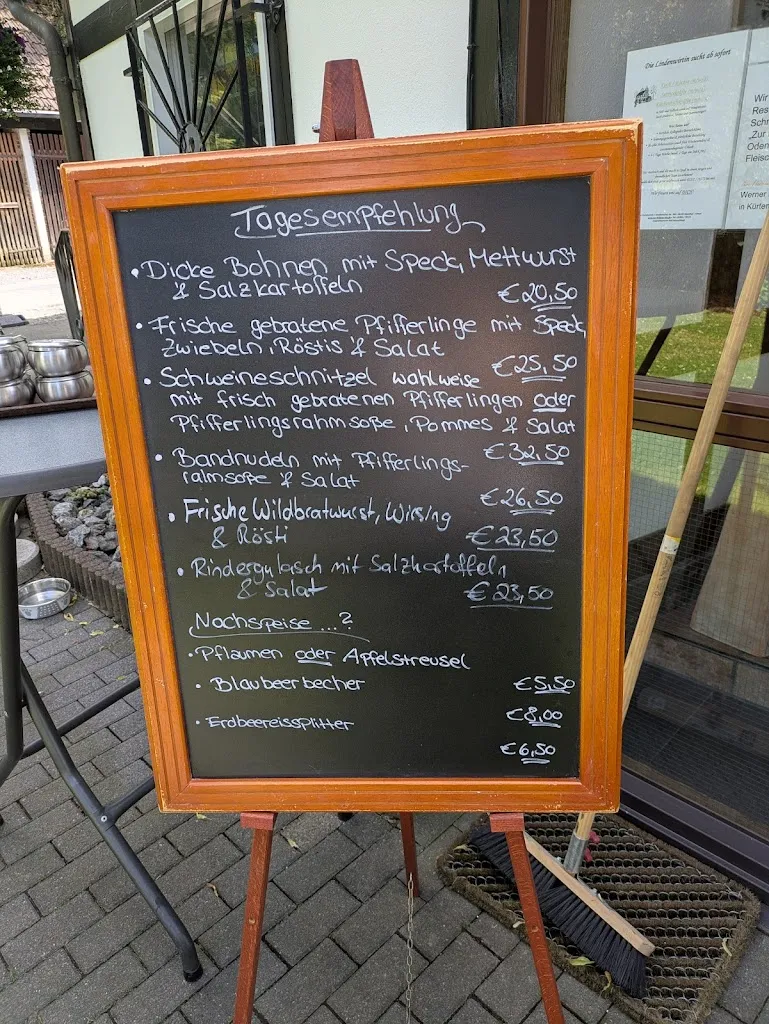 Tagesempfehlung
• Dicke Bohnen mit Speck, Mettwurst
& Salzkartoffeln
€20,50
• Frische gebratene Pfifferlinge mit Speck,
Zwiebeln, Röstis & Salat
€25,50
• Schweineschnitzel wahlweise
mit frisch gebratenen Pfifferlingen oder
Pfifferlingsrahmsoße, Pommes & Salat
€32,50
• Bandnudeln mit Pfifferlings-
rahmsoße & Salat
€26,50
• Frische Wildbratwurst, Wirsing
& Rösti
€23,50
• Rindergulasch mit Salzkartoffeln
& Salat
€23,50
Nachspeise ...?
• Pflaumen oder Apfelstreusel
€5,50
• Blaubeerbecher
€8,00
• Erdbeereissplitter
€6,50
Die Lindenwirtin sucht ab sofort
Wir
Res
Schr
"Zur
Oden
Fleisc
Werner
in Kürten